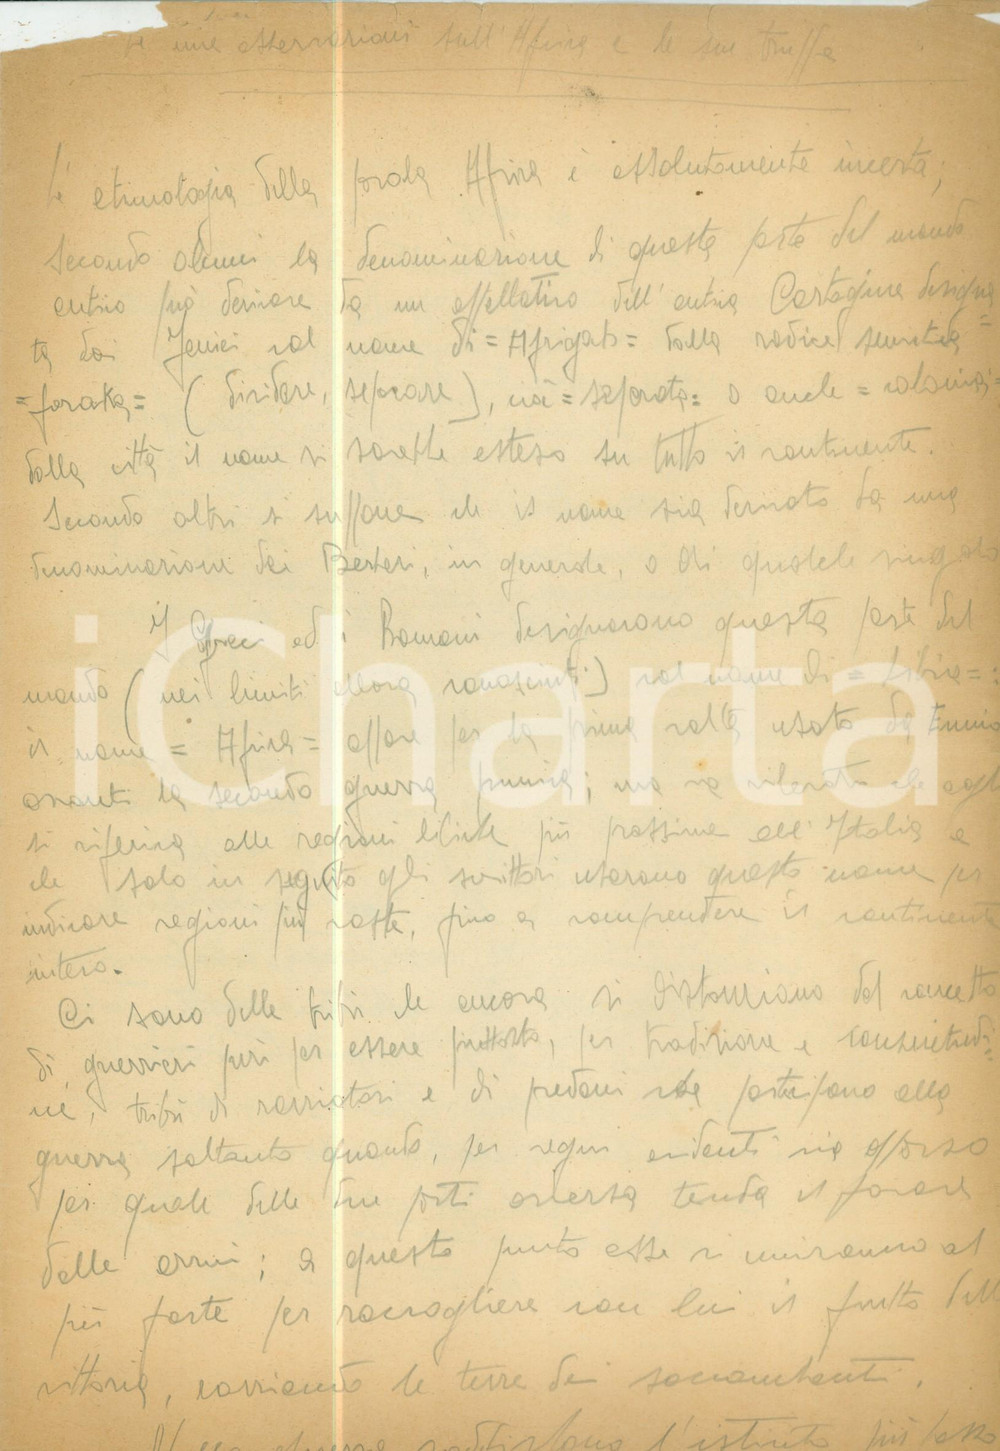 Le mie osservazioni sull'Africa e le sue truppe
L'etimologia della parola Africa è assolutamente incerta;
secondo alcuni la denominazione di questa parte del mondo
antico può derivare da un appellativo dell'antica Cartagine designa=
ta dai Fenici col nome di =Afrigah= dalla radice semitica
=faraka= (dividere, separare), cioè =separata= o anche =colonia=
dalla città il nome si sarebbe esteso su tutto il continente.
Secondo altri si suppone che il nome sia derivato da una
denominazione dei Berberi, in generale, o di qualche singola
I Greci ed i Romani designarono questa parte del
mondo (nei limiti allora conosciuti) col nome di =Libia=:
il nome =Africa= appare per la prima volta usato da Ennio
avanti la seconda guerra punica; ma va rilevato che egli
si riferiva alle regioni libiche più prossime all'Italia e
che solo in seguito gli scrittori usarono questo nome per
indicare regioni più vaste, fino a comprendere il continente
intero.
Ci sono delle tribù che ancora si distaccano dal concetto
di guerrieri puri per essere piuttosto, per tradizione e consuetudi=
ne, tribù di razziatori e di predoni che partecipano alla
guerra soltanto quando, per segni evidenti sia apparso
per quale delle due parti avversa tenda il favore
delle armi; a questo punto esse si uniranno al
più forte per raccogliere con lui il frutto della
vittoria, razziando le terre dei soccombenti.
l'istinto più basso
iCharta